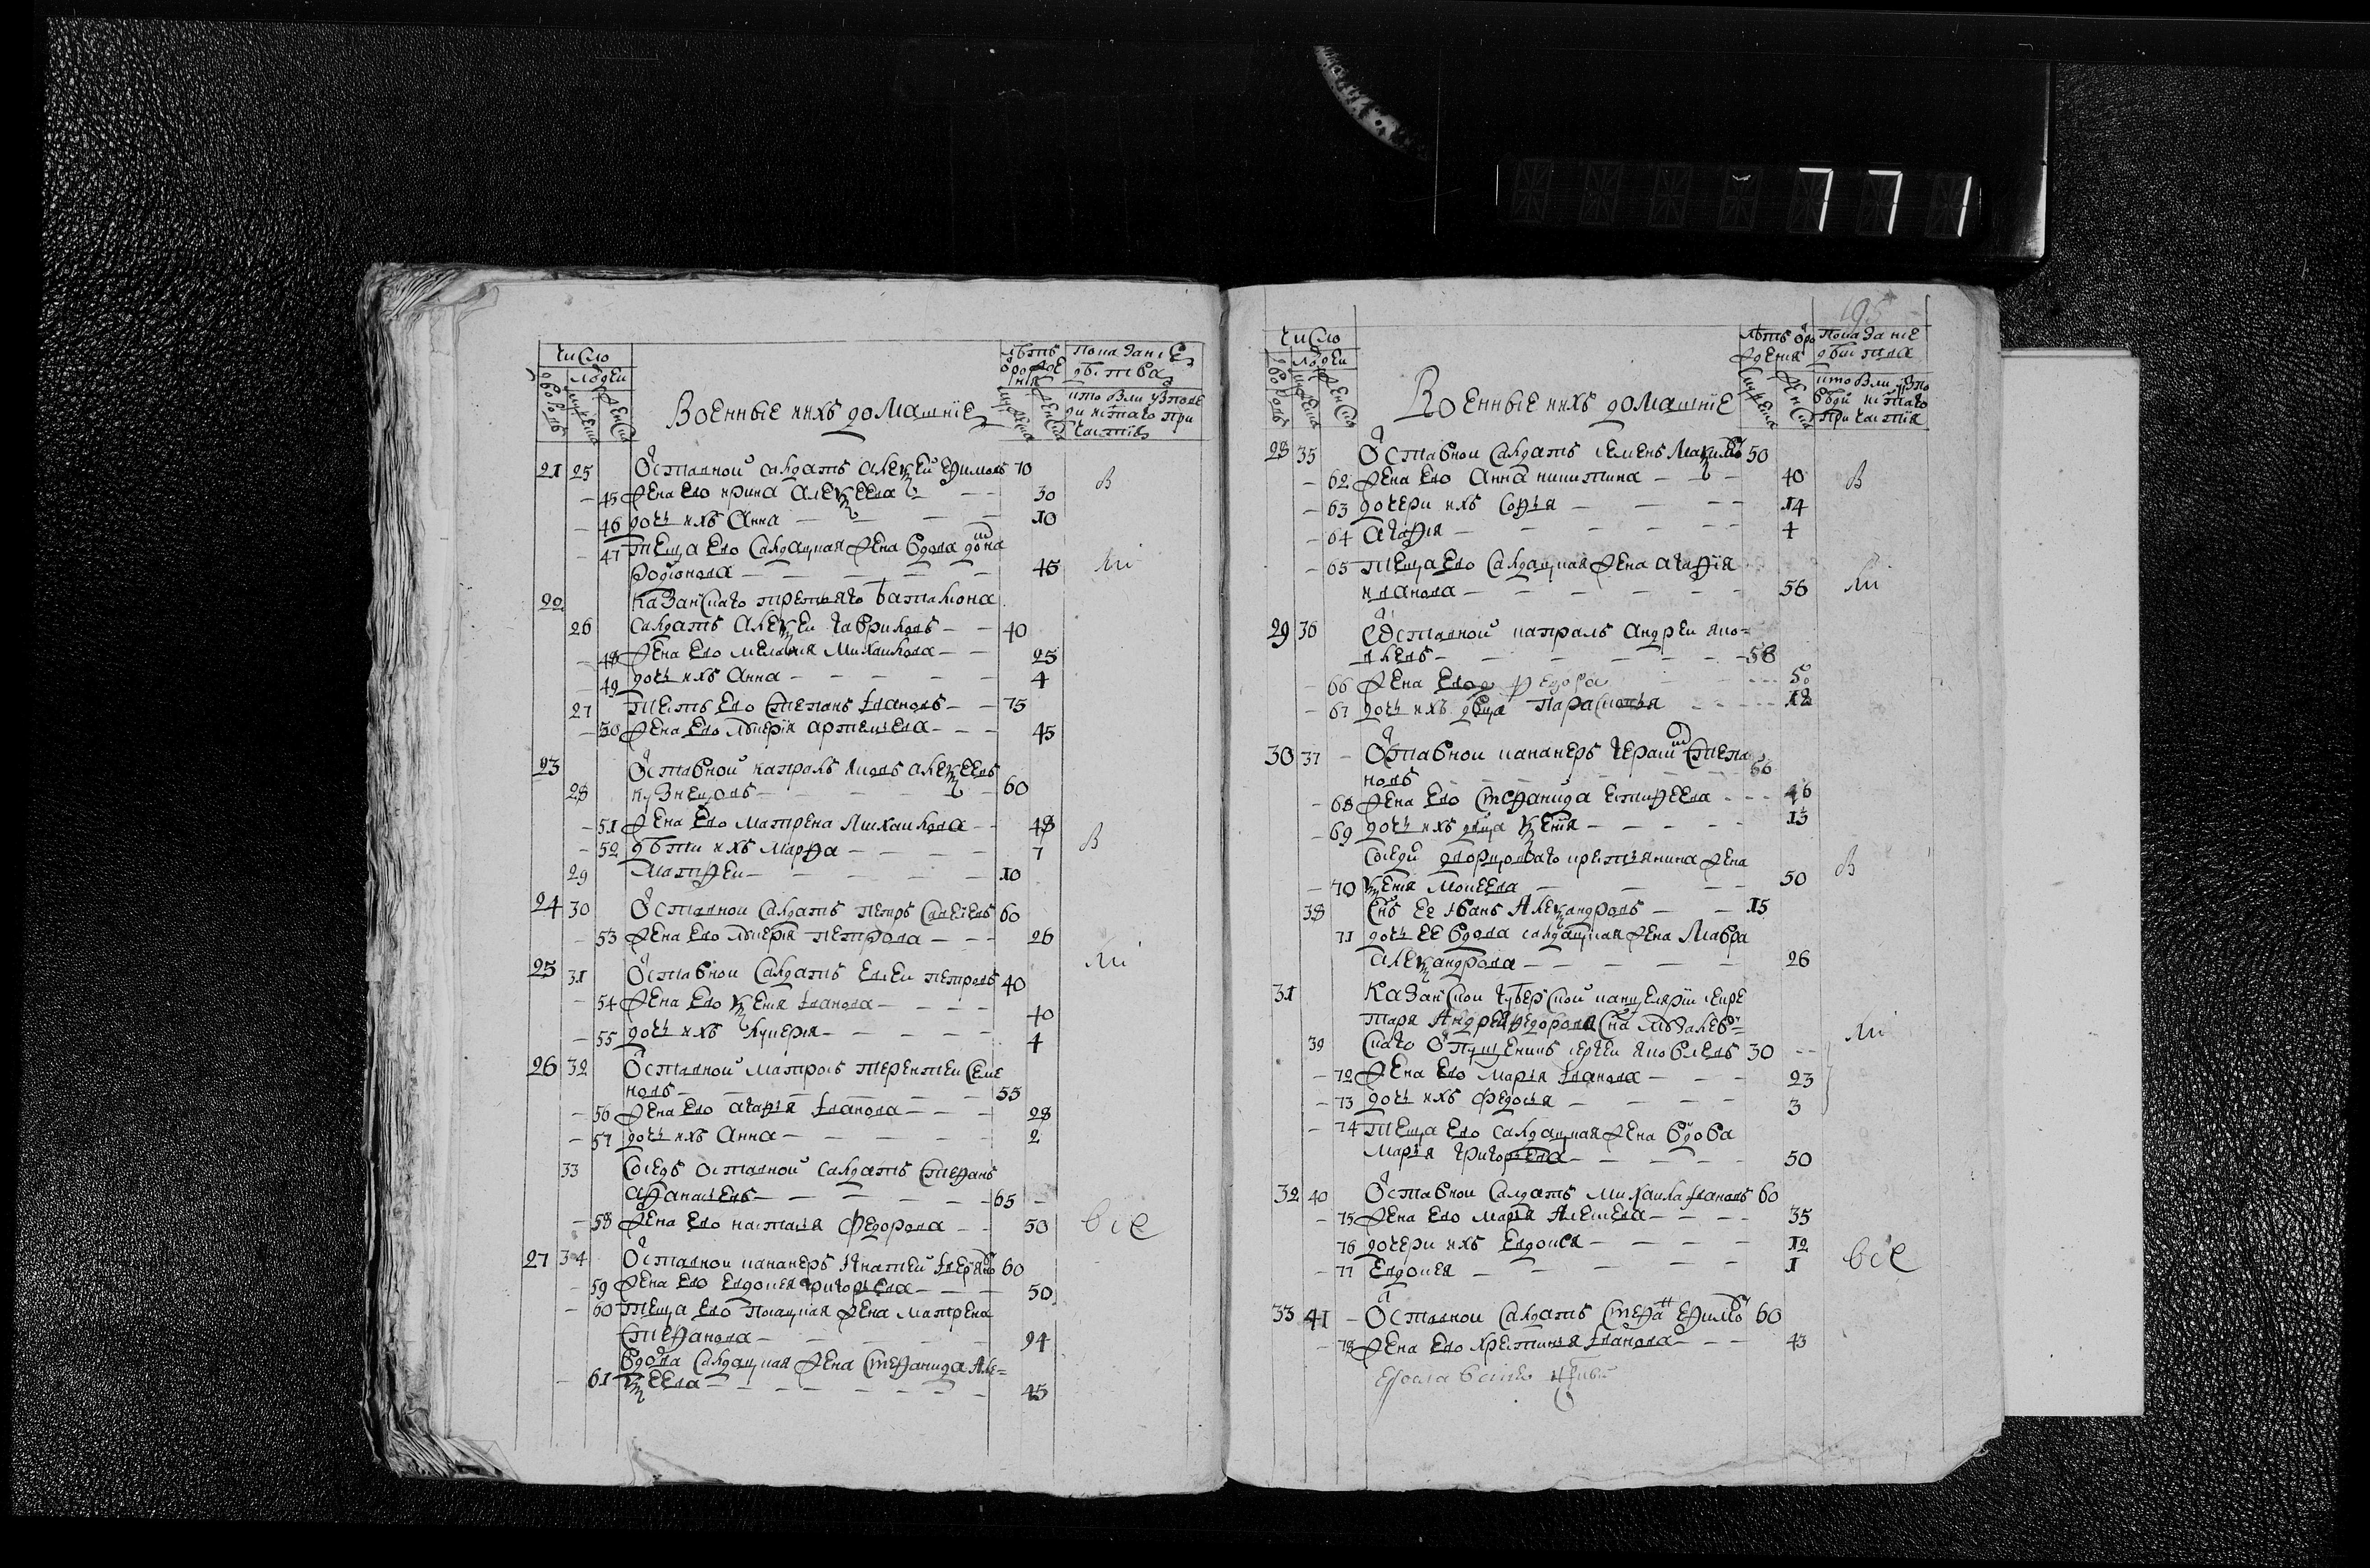 771
число
людеи
дворовъ
мужеска
женска
Военные и ихъ домашние
лѣтъ
от рожде
ния
мужеска
женска
показание
действа
кто были у испове
ди и с̃таго при
частия
21 25 Отставной салдатъ Алеѯей Ефимовъ 70
45 жена его Ирина Алеѯеева 30
46 дочь ихъ Анна 10
47 теща его салдацкая жена вдова
Родионова 45
22 казанскаго третьяго баталиона
26 салдатъ Алеѯей Гавриловъ 40
48 жена его Меланья Михайлова 25
49 дочь ихъ Анна 4
27 тесть его Степанъ Ивановъ 75
50 жена его Лукерия Артемьева 45
23 Отставной капралъ Яковъ Алеѯеевъ
28 Кузнецовъ 60
51 жена его Матрена Михайлова 48
52 дѣти ихъ Марфа 7
29 Матфеи 10
24 30 Отставнои салдатъ Петръ Савельевъ 60
53 жена его Лукерия Петрова 26
25 31 Отставнои салдатъ Елисей Петровъ 40
54 жена его Ѯения Иванова 40
55 дочь ихъ Лукерия 4
26 32 Отставной матросъ Терентеи Семе
новъ 55
56 жена его Агафья Иванова 28
57 дочь ихъ Анна 2
33 соседъ отставной салдатъ Стефанъ
Афанасьевъ 65
58 жена его Настасья Федорова 50
все
27 34 Отставнои кананеръ Игнатей 60
59 жена его Евдокия Григорьева 50
60 теща его жена Матрена
Стефанова 94
вдова салдацкая жена Стефанида Але=
61 ѯеева 45
195
число
людеи
дворовъ
мужеска
женска
Военные и ихъ домашние
лѣтъ от ро
ждения
мужеска
женска
показание
действа
кто были у испо
веди и с̃таго
причастия
28 35 Отставнои салдатъ Семенъ Маѯимовъ 50
62 жена его Анна Никитина 40
63 дочери ихъ Софья 14
64 Агафия 4
65 теща его салдацкая жена Агафия
Иванова 56
29 36 Отставной капралъ Андреи Яко=
влевъ 58
66 жена его Федора 50
67 дочь ихъ девица Парасковья 12
30 37 Отставнои кананеръ Герасим Степа
новъ 66
68 жена его Стефанида Естифеева 46
69 дочь ихъ девица Ѯения 13
соседи дворцоваго крестьянина жена
70 Ѯения Мокеева 50
38 с̃нъ ее Иванъ Алеѯандровъ 15
71 дочь ее вдова салдацкая жена Мавра
Алеѯандрова 26
31 Казанской губернской канцелярии секре
таря Андрея Федорова с̃на
39 скаго отпущеникъ Сергеи Яковлевъ 30
72 жена его Марья Иванова 23
73 дочь ихъ Федосья 3
74 теща его салдацкая жена вдова
Марья Григорьева 50
32 40 Отставнои салдатъ Михаила Ивановъ 60
75 жена его Марья Алексеева 35
76 дочери ихъ Евдокия 12
77 Евдокия 1
все
33 41 Отставнои салдатъ Стефанъ Ефимовъ 60
78 жена его Хрестинья Иванова 43